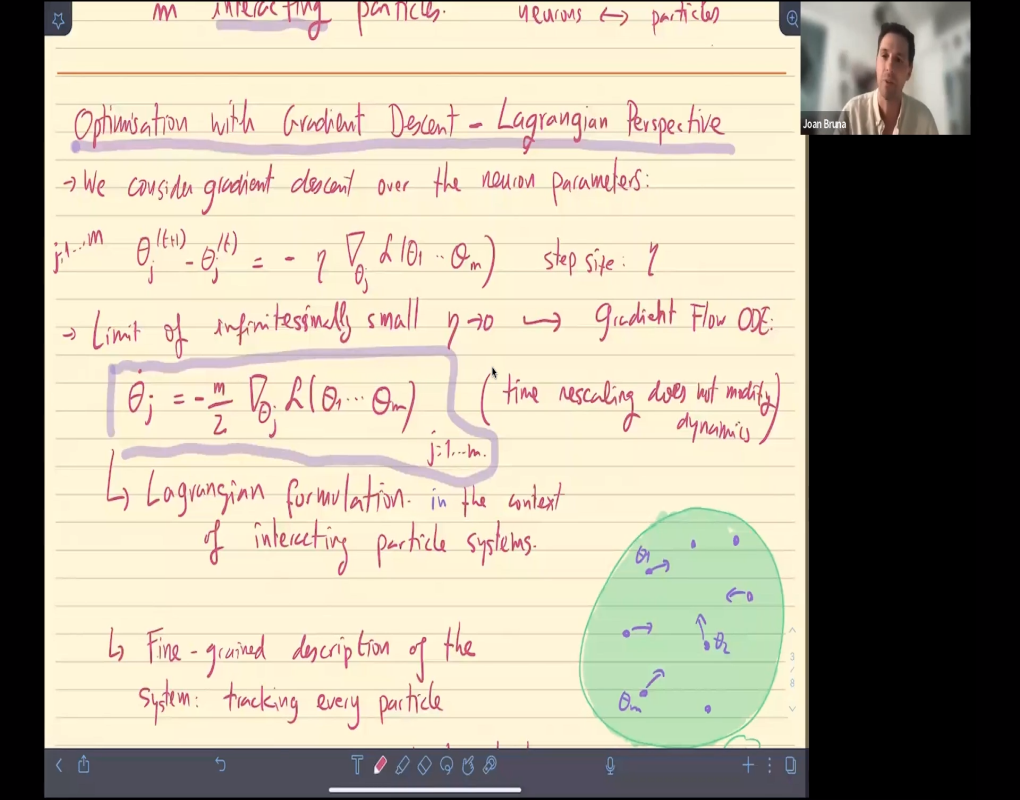 m interacting particles. neurons ↔ particles
Joan Bruna
Optimisation with Gradient Descent - Lagrangian Perspective
→ We consider gradient descent over the neuron parameters:
j=1...m θ_j^(t+1) - θ_j^(t) = - η ∇_θj L(θ1 ... θm) step size: η
→ Limit of infinitessimally small η→0 ↪ Gradient Flow ODE:
θ̇_j = - m/2 ∇_θj L(θ1 ... θm) j=1...m.
(time rescaling does not modify
dynamics)
↳ Lagrangian formulation. in the context
of interacting particle systems.
θ1
θ2
θm
↳ Fine-grained description of the
system: tracking every particle
3
/
8